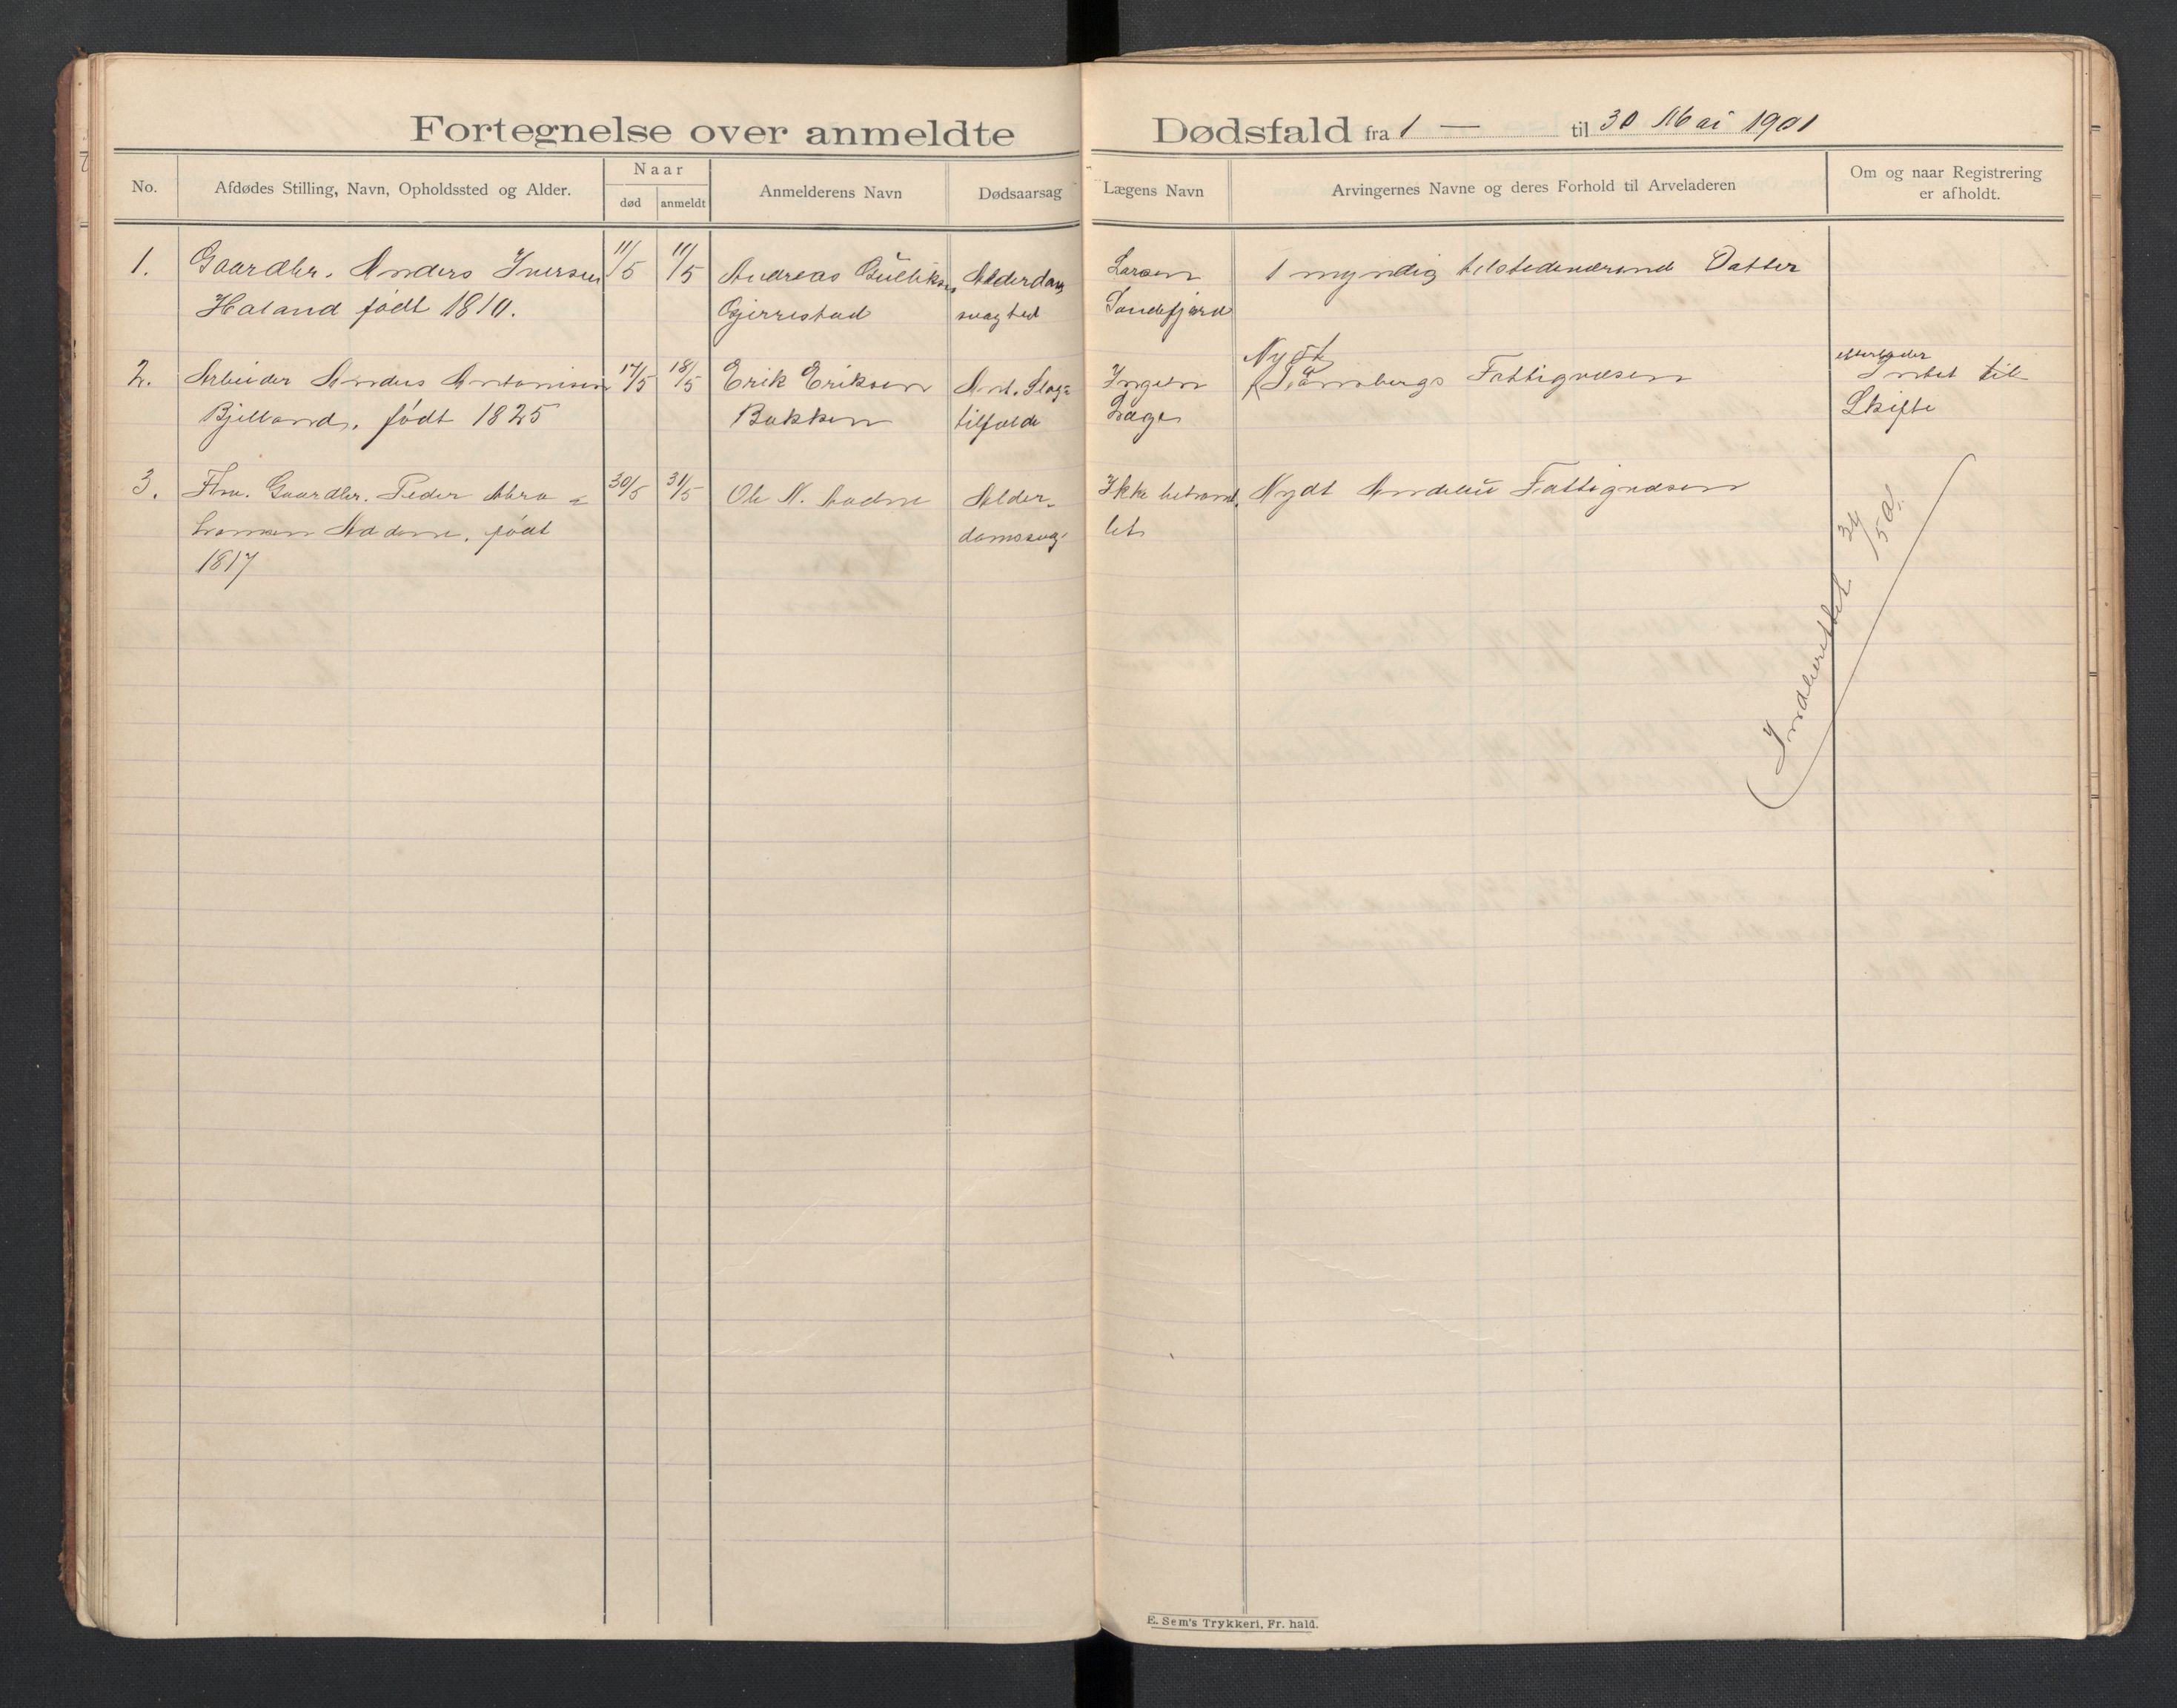 Fortegnelse over anmeldte Dødsfald fra 1 — til 30 Mai 1901
No.
Afdødes Stilling, Navn, Opholdssted og Alder.
Naar
død
anmeldt
Anmelderens Navn
Dødsaarsag
Lægens Navn
Arvingernes Navne og deres Forhold til Arveladeren
Om og naar Registrering
er afholdt.
1.
Gaardbr. Anders Iversen
Haland født 1810.
11/5
11/5
Andreas Gulliksen
Gjerrestad
Alderdoms
svaghed
Larsen
Sandefjord
1 myndig tilstedeværend Datter
2.
Arbeider Anders Antonisen
Bjelland, født 1825
17/5
18/5
Erik Eriksen
Bakken
Ant. Slag-
tilfælde
Ingen
Læge
Nydt
Tønsbergs Fattigvæsen
efterlader
Intet til
Skifte
3.
Fhv. Gaardbr. Peder Abra-
hamsen Aadne, født
1817
30/5
31/5
Ole N. Aadne
Alder-
domssvag.
Ikke behand-
let
Nydt Andebu Fattigvæsen
Indberettet 31/5 01.
E. Sem's Trykkeri, Fr. hald.